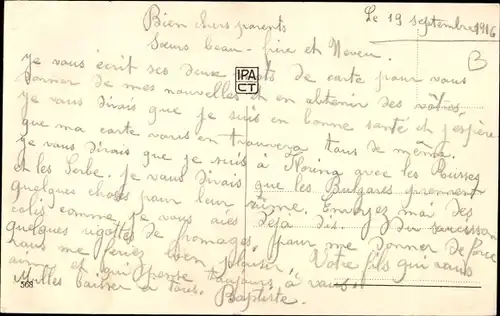 Le 19 septembre 1916
Bien chers parents
Sœurs beau-frère et Neveu.
je vous écrit ses deux mots de carte pour vous
donner de mes nouvelles et en obtenir des vôtres,
je vous dirais que je suis en bonne santé et j'espère
que ma carte vous en trouvera tous de même.
je vous dirais que je suis à Florina avec les Russes
et les Serbe. je vous dirais que les Bulgares prennent
quelques choses pour leur rhume. Envoyez moi des
colis comme je vous aies déjà dis. Du saucisson
quelques rigottes de fromages, pour me donner de force
vous me feriez bien plaisir. Votre fils qui vous
aime et qui pense toujours à vous.
Milles baiser a tous. Baptiste.
IPA
CT
568